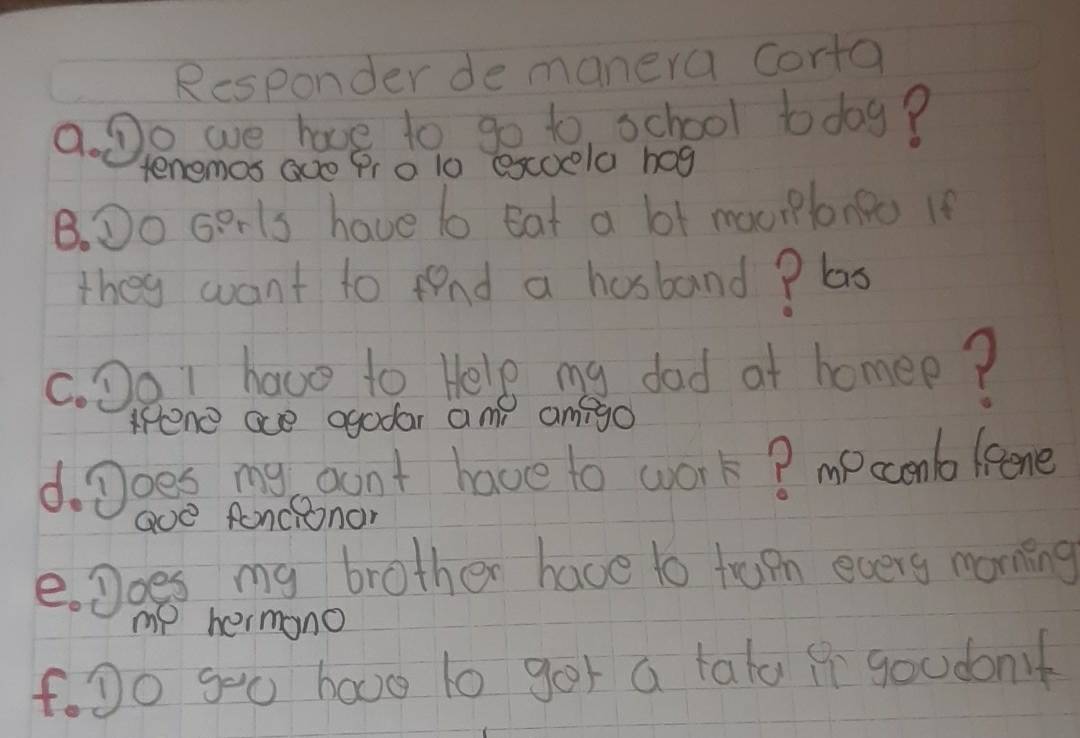 Responder de manera corta
a. Do we have to go to school today?
tenemos que ir a la escuela hoy
B. Do Girls have to Eat a lot if
they want to find a husband? las
c. Do I have to Help my dad at home?
tiene que ayudar a mi amigo
d. Does my aunt have to work? mi tiene
que funcionar
e. Does my brother have to train every morning
mi hermano
f. Do you have to get a if you don't